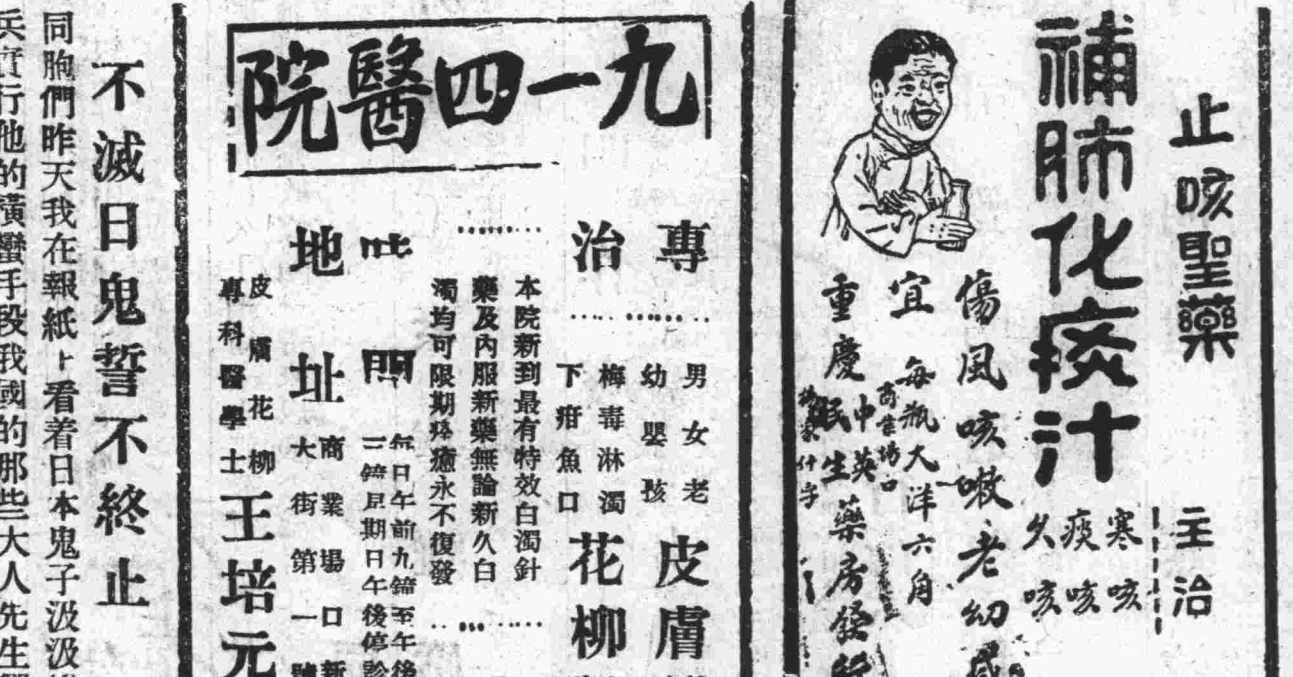 止咳聖藥
補肺化痰汁
主治
寒咳
痰咳
久咳
傷風咳嗽老幼咸
宜
每瓶大洋六角
商業場口
重慶
中英
民生
藥房經
九一四醫院
專
治
男女老
幼嬰孩
皮膚
梅毒淋濁
下疳魚口
花柳
本院新到最有特效白濁針
藥及內服新藥無論新久白
濁均可限期痊癒永不復發
時間
每日午前九鐘至午後
三鐘星期日午後停診
地址
商業場口新
大街第一號
皮膚花柳
專科醫學士
王培元
不滅日鬼誓不終止
同胞們昨天我在報紙上看着日本鬼子汲汲
兵實行他的橫蠻手段我國的那些大人先生